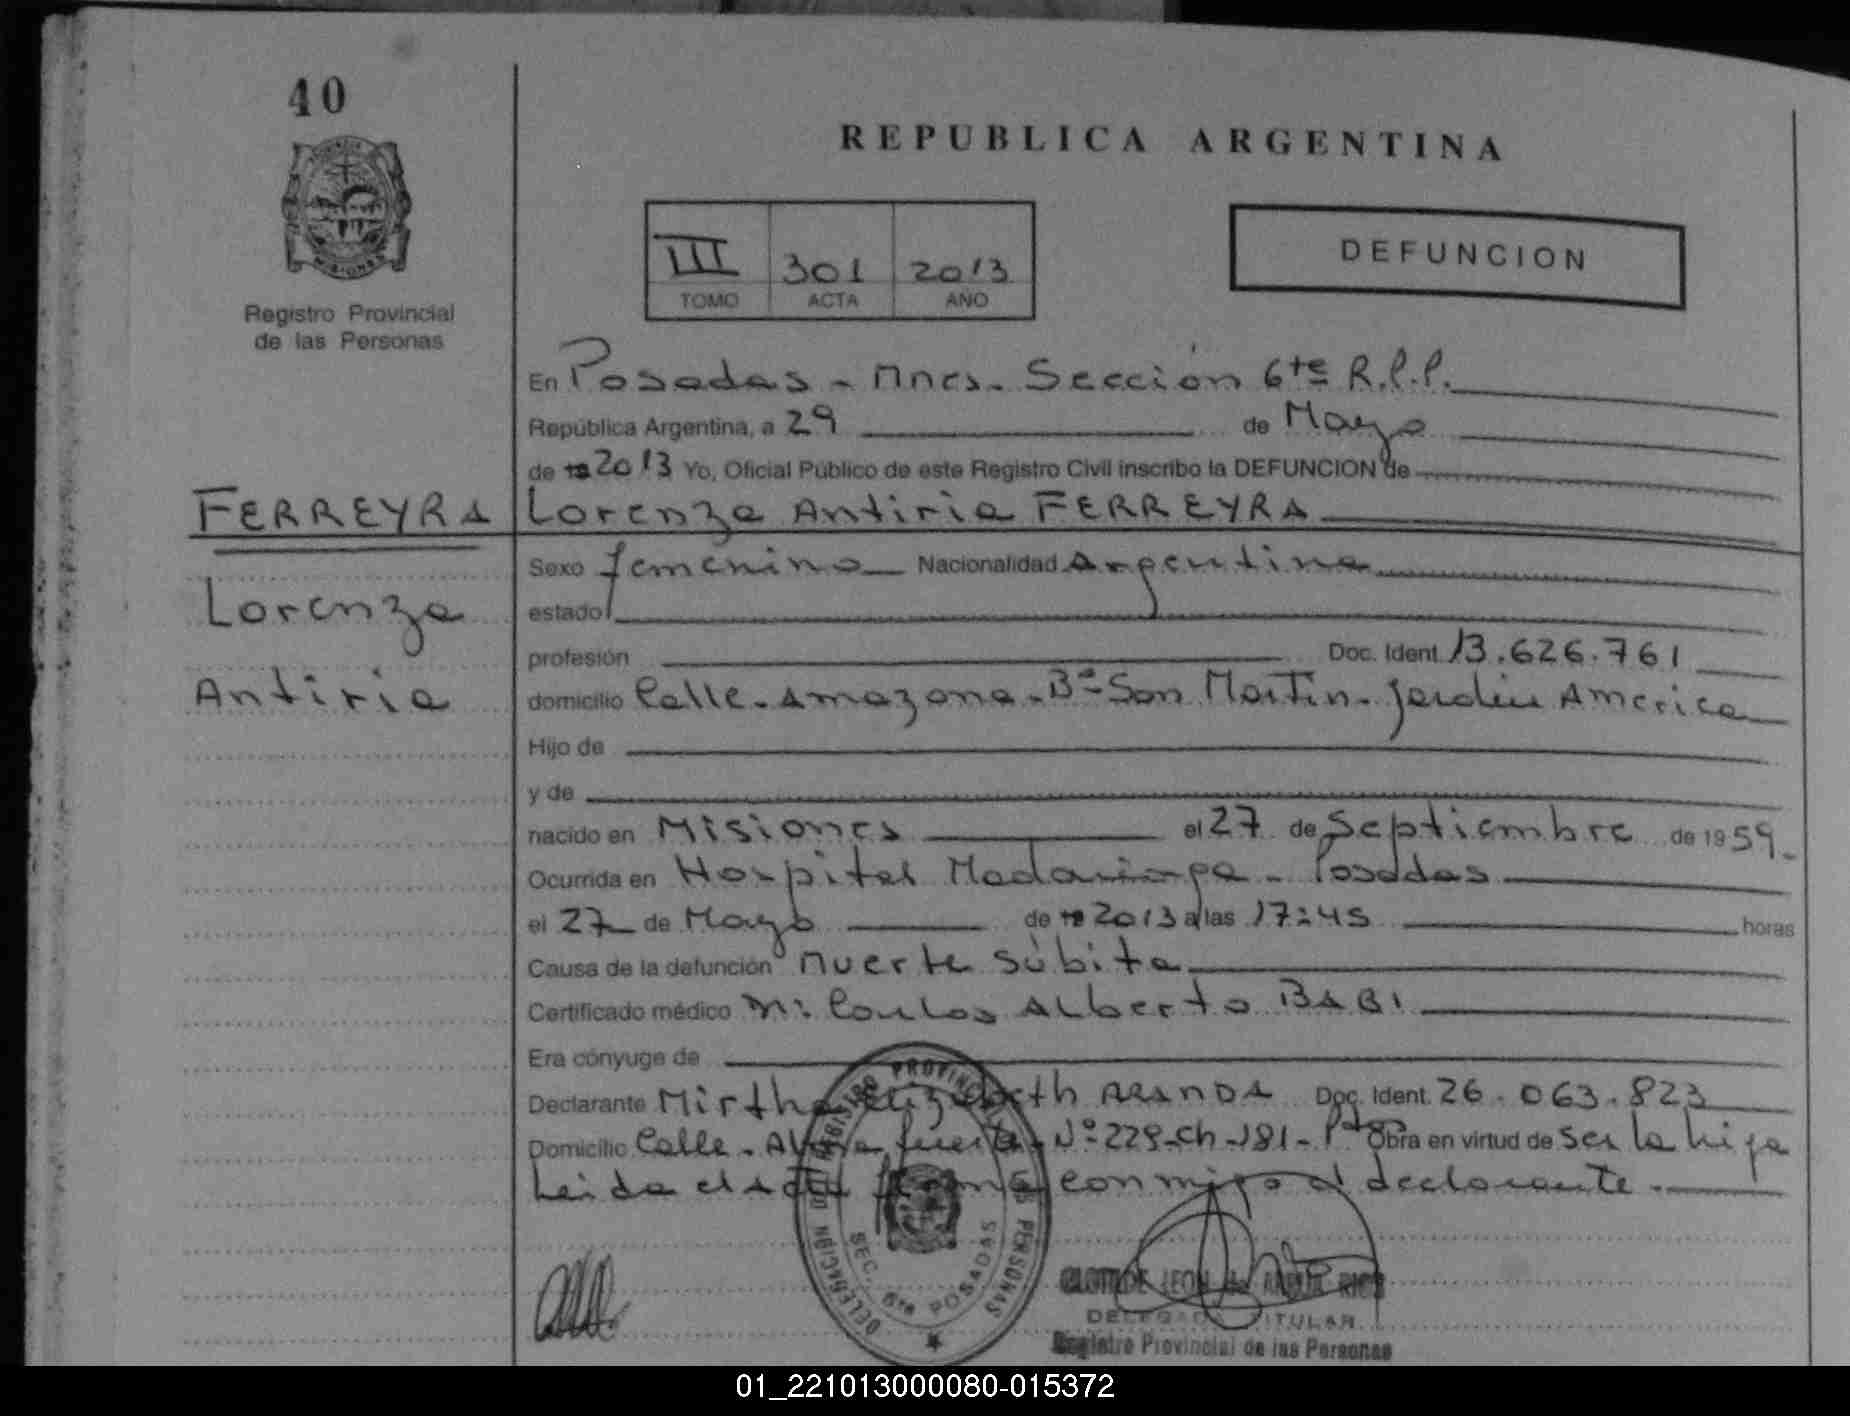 40
MISIONES
Registro Provincial
de las Personas
REPUBLICA ARGENTINA
III 301 2013
TOMO ACTA AÑO
DEFUNCION
En Posadas - Mnes. Sección 6te R.P.P.
República Argentina, a 29 de Mayo
de 19 2013 Yo, Oficial Público de este Registro Civil inscribo la DEFUNCION de
FERREYRA Lorenza Antiria FERREYRA
Lorenza
Antiria
Sexo femenino Nacionalidad Argentina
estado
profesión Doc. Ident. 13.626.761
domicilio Calle - Amazona - Bº San Martin - Jardin America
Hijo de
y de
nacido en Misiones el 27 de Septiembre de 1959.
Ocurrida en Hospital Madariaga - Posadas
el 27 de Mayo de 19 2013 a las 17:45 horas
Causa de la defunción Muerte súbita
Certificado médico Carlos Alberto BABI
Era cónyuge de
Declarante Mirtha Elizabeth ARANDA Doc. Ident. 26.063.823
Domicilio Calle - fuerte - Nº 229 - Ch - 181 - Obra en virtud de ser la hija
Leida el acta firma conmigo el declarante.
DELEGACION DEL REGISTRO PROVINCIAL DE LAS PERSONAS
SEC. 6ta POSADAS
CLOTILDE LEON de
DELEGADA TITULAR
Registro Provincial de las Personas
01_221013000080-015372